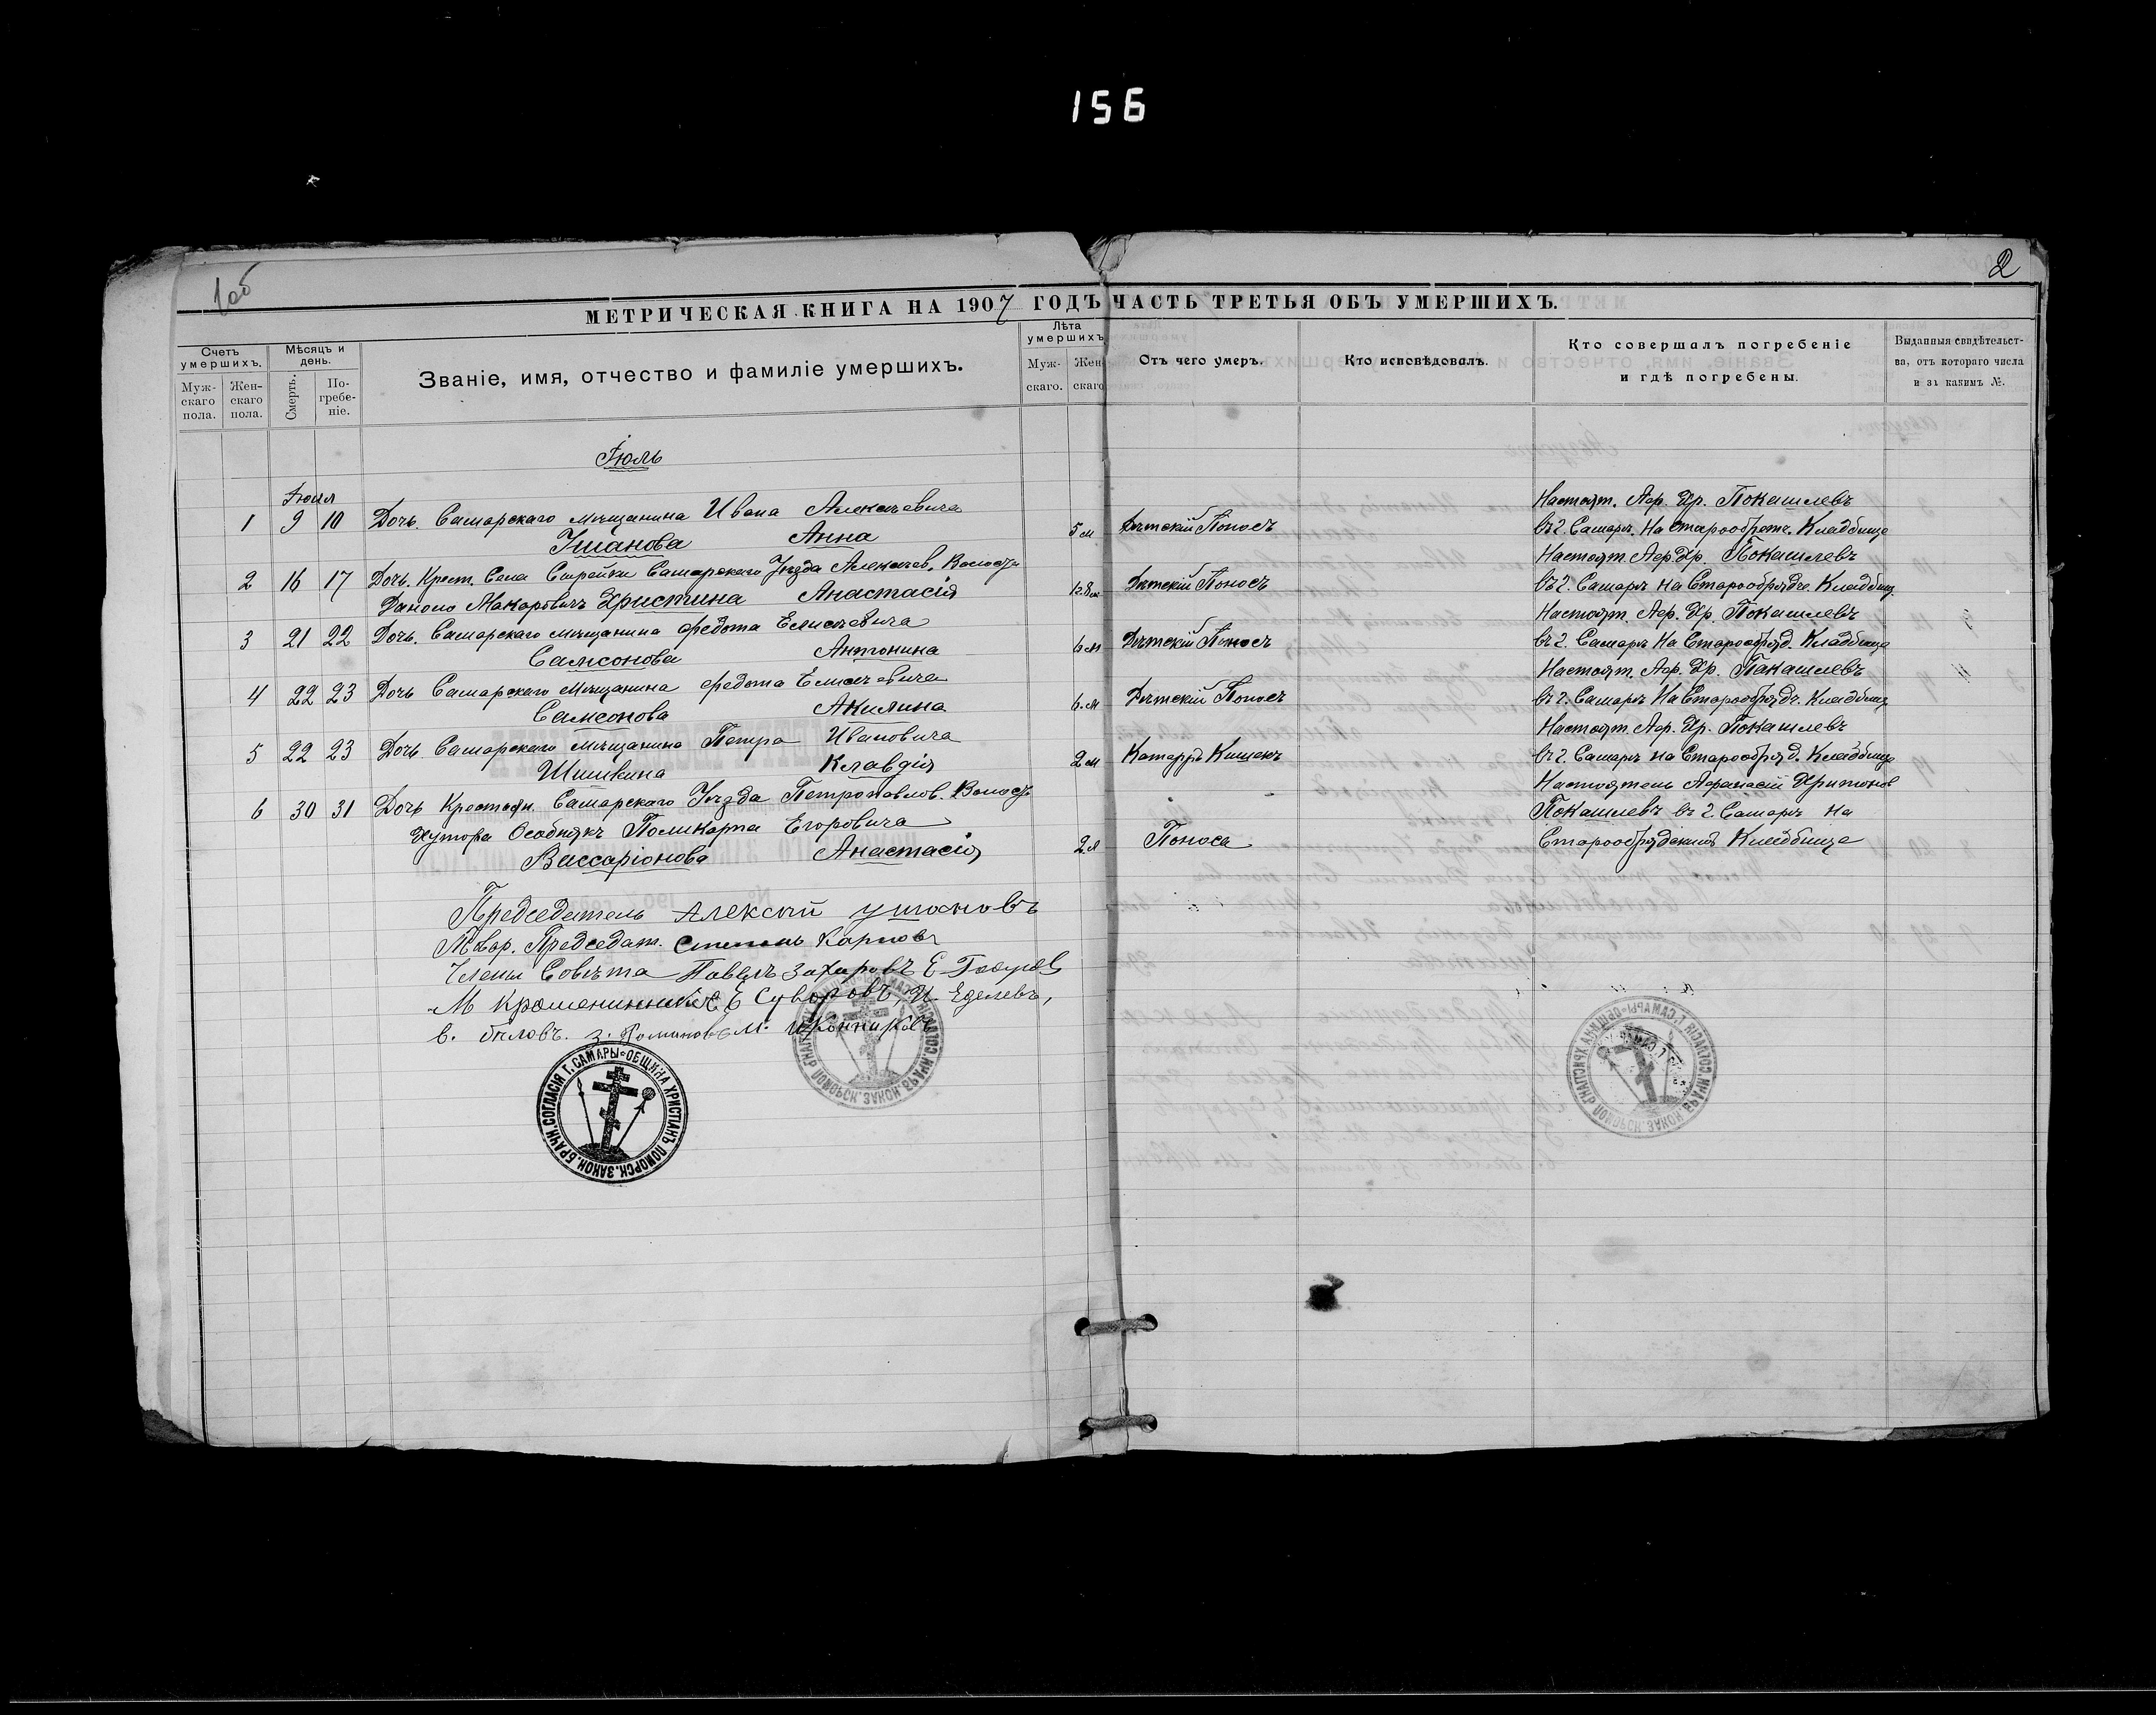 156
1об
2
МЕТРИЧЕСКАЯ КНИГА НА 1907 ГОДЪ ЧАСТЬ ТРЕТЬЯ ОБЪ УМЕРШИХЪ.
Счетъ умершихъ.
Мужскаго пола.
Женскаго пола.
Мѣсяцъ и день.
Смерть.
Погребеніе.
Званіе, имя, отчество и фамиліе умершихъ.
Лѣта умершихъ
Мужскаго.
Женскаго
Отъ чего умеръ.
Кто исповѣдовалъ.
Кто совершалъ погребеніе
и гдѣ погребены.
Выданныя свидѣтельст-
ва, отъ котораго числа
и за какимъ №.
Іюль
Іюля
1 9 10 Дочь. Самарскаго мѣщанина Ивана Алексѣевича
Ушанова Анна
5 м Дѣтскій Поносъ
Настоят. Аф. Хр. Покашлевъ
въ г. Самарѣ. На Старообрятч. Кладбище
2 16 17 Дочь. Крест. Села Сырейки Самарскаго Уѣзда Алексѣев. Волости
Данило Макаровичъ Христина Анастасія
Дѣтскій Поносъ
Настоят. Аф. Хр. Покашлевъ
въ г. Самарѣ на Старообрядче. Кладбищ.
3 21 22 Дочь. Самарскаго мѣщанина Федота Елисѣевича
Самсонова Антонина
6 м Дѣтскій Поносъ
Настоят. Аф. Хр. Покашлевъ
въ г. Самарѣ На Старообряд. Кладбище
4 22 23 Дочь Самарскаго Мѣщанина Федота Елисѣевича
Самсонова Акилина
6. м Дѣтскій Поносъ
Настоят. Аф. Хр. Покашлевъ
въ г. Самарѣ На Старообрядч. Кладбище
5 22 23 Дочь Самарскаго Мѣщанина Петра Ивановича
Шишкина Клавдія
2 м Катарръ Кишекъ
Настоят. Аф. Хр. Покашлевъ
въ г. Самарѣ на Старообряд. Кладбище
6 30 31 Дочь Крестьян. Самарскаго Уѣзда Петропавлов. Волости
Хутора Особнякъ Поликарпа Егоровича
Виссаріонова Анастасія
2 л Поноса
Настоятель Афанасій Харитонов
Покашлевъ въ г. Самарѣ на
Старообрядскимъ Кладбище
Предсѣдатель Алексѣй Ушановъ
Товар. Предсѣдат. Степанъ Карповъ
Члены Совѣта Павелъ Захаровъ Е
М Крашенинниковъ Е Суворовъ, И. Еделевъ,
в. бѣловъ. З. Романовъ М. Иконниковъ
ОБЩИНА ХРИСТІАНЪ ПОМОРСК. ЗАКОН. БРАЧН. СОГЛАСІЯ Г. САМАРЫ
ОБЩИНА ХРИСТІАНЪ ПОМОРСК. ЗАКОН. БРАЧН. СОГЛАСІЯ Г. САМАРЫ